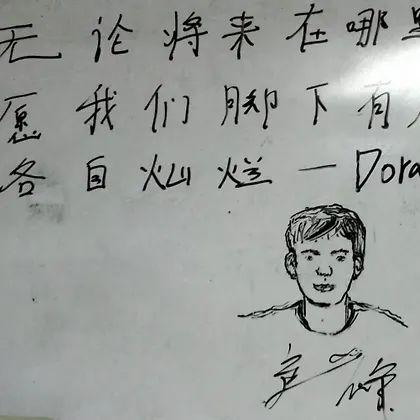 无论将来在哪里
愿我们脚下有
各自灿烂—Dora